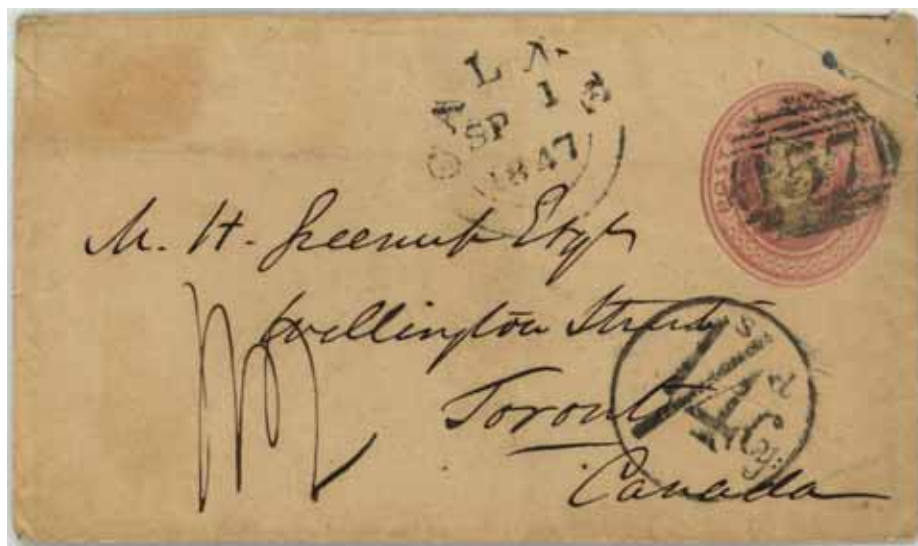 GALA S
SP 1
1847
POST
157
M. H. Esqr
Wellington Street
Toronto
Canada
1/4 Cy.